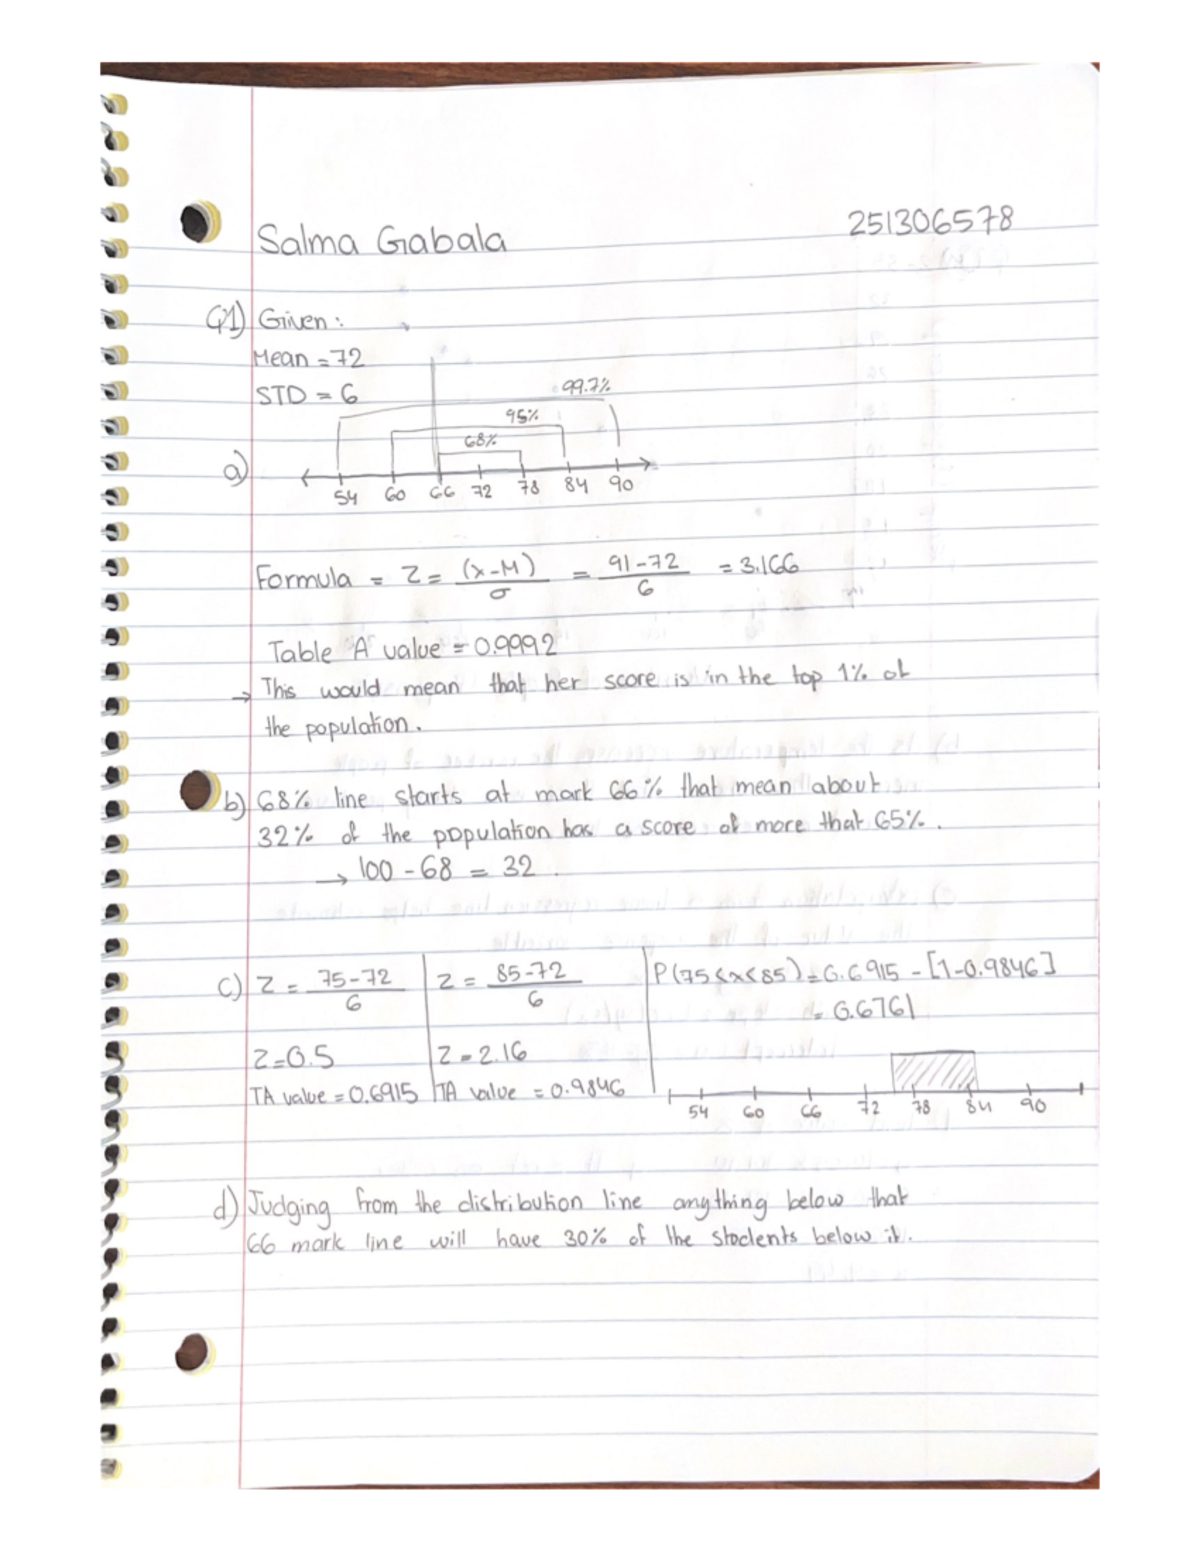 Salma Gabala 251306578
Q1) Given:
Mean = 72
STD = 6
99.7%
95%
68%
a)
54 60 66 72 78 84 90
Formula = Z = (x-M)/σ = 91-72/6 = 3.166
Table A value = 0.9992
→ This would mean that her score is in the top 1% of
the population.
b) 68% line starts at mark 66% that mean about
32% of the population has a score of more that 65%.
→ 100 - 68 = 32.
c) Z = 75-72/6 Z = 85-72/6 P(75<x<85) = 0.6915 - [1-0.9846]
= 0.6761
Z=0.5 Z=2.16
TA value = 0.6915 TA value = 0.9846
54 60 66 72 78 84 90
d) Judging from the distribution line anything below that
66 mark line will have 30% of the students below it.